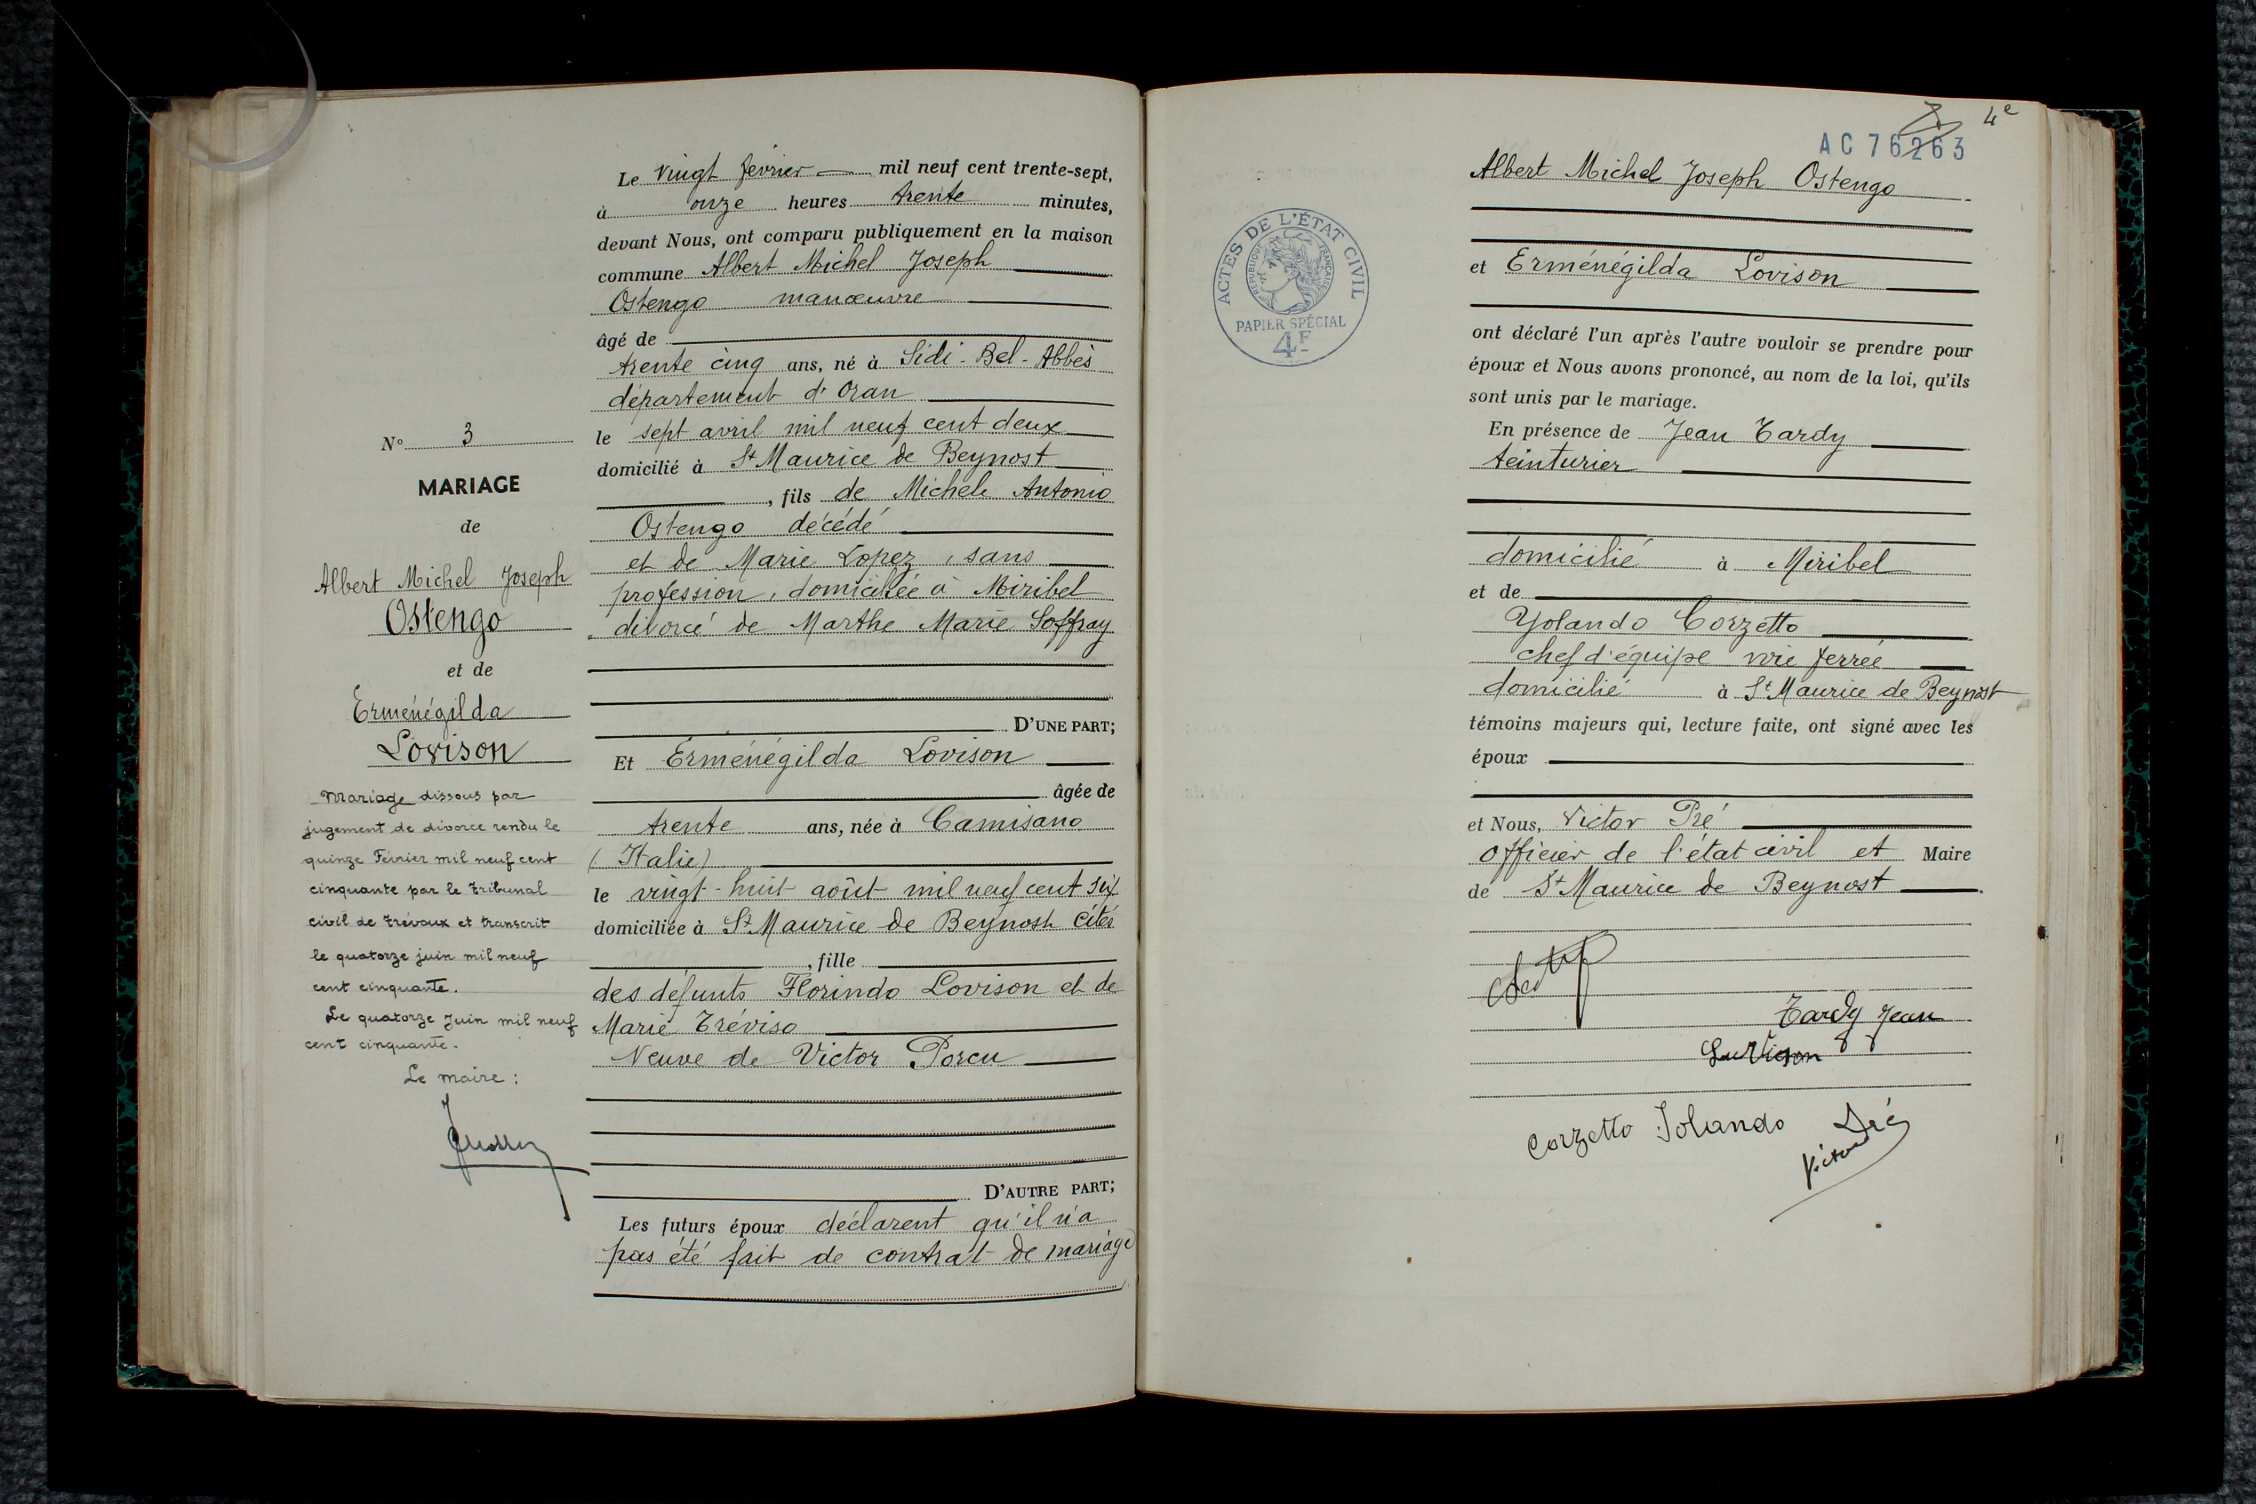 N° 3
MARIAGE
de
Albert Michel Joseph
Ostengo
et de
Erménégilda
Lovison
Mariage dissous par
jugement de divorce rendu le
quinze Février mil neuf cent
cinquante par le tribunal
civil de Trévoux et transcrit
le quatorze juin mil neuf
cent cinquante.
Le quatorze Juin mil neuf
cent cinquante.
Le maire :
Le vingt février mil neuf cent trente-sept,
à onze heures trente minutes,
devant Nous, ont comparu publiquement en la maison
commune Albert Michel Joseph
Ostengo manœuvre
âgé de
trente cinq ans, né à Sidi-Bel-Abbès
département d'Oran
le sept avril mil neuf cent deux
domicilié à St Maurice de Beynost
, fils de Michele Antonio
Ostengo décédé
et de Marie Lopez, sans
profession, domiciliée à Miribel
divorcé de Marthe Marie Soffray
D'UNE PART;
Et Erménégilda Lovison
âgée de
trente ans, née à Camisano
(Italie)
le vingt-huit août mil neuf cent six
domiciliée à St Maurice de Beynost cités
, fille
des défunts Florindo Lovison et de
Marie Tréviso
Veuve de Victor Porcu
D'AUTRE PART;
Les futurs époux déclarent qu'il n'a
pas été fait de contrat de mariage
4e
AC 76263
ACTES DE L'ÉTAT CIVIL
RÉPUBLIQUE FRANÇAISE
PAPIER SPÉCIAL
4F
Albert Michel Joseph Ostengo
et Erménégilda Lovison
ont déclaré l'un après l'autre vouloir se prendre pour
époux et Nous avons prononcé, au nom de la loi, qu'ils
sont unis par le mariage.
En présence de Jean Tardy
teinturier
domicilié à Miribel
et de
Yolando Corzetto
chef d'équipe voie ferrée
domicilié à St Maurice de Beynost
témoins majeurs qui, lecture faite, ont signé avec les
époux
et Nous, Victor Pré
officier de l'état civil et Maire
de St Maurice de Beynost
Tardy Jean
Corzetto Iolando
Pré
Victor